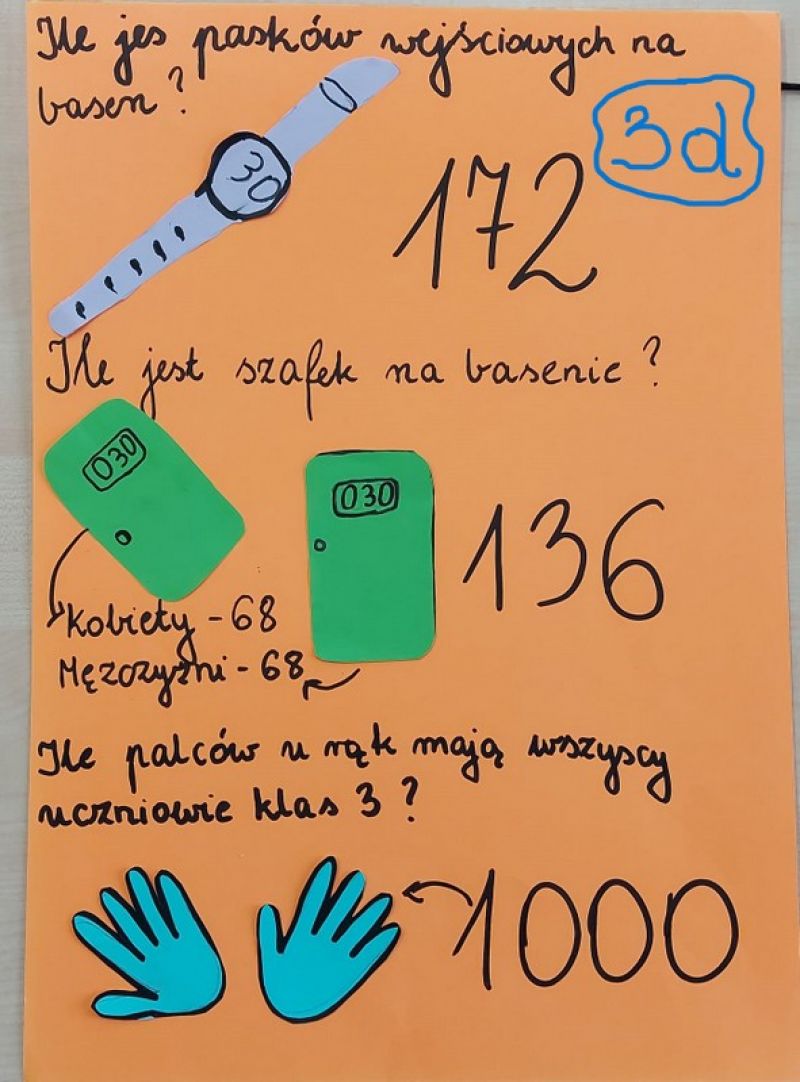 Ile jes pasków wejściowych na
basen?
3d
30
172
Ile jest szafek na basenie?
030
030
136
Kobiety - 68
Mężczyzni - 68
Ile palców u rąk mają wszyscy
uczniowie klas 3?
1000